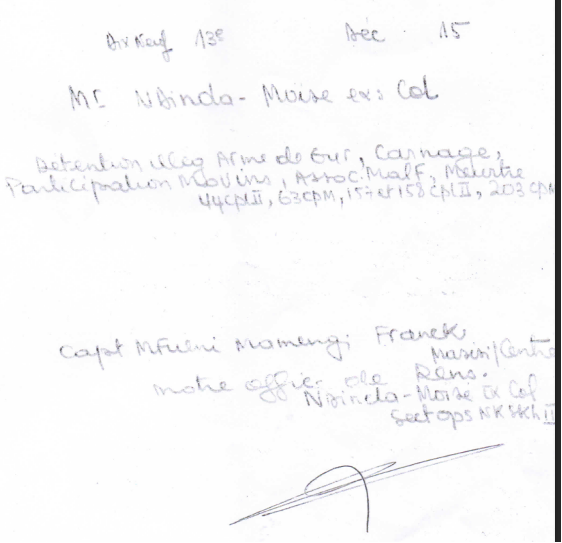 Dix Neuf 13e Déc 15
Mr Ndinda-Moïse exs Col
Detention illég Arme de Gur, Carnage,
Participation Mov ins, Assoc. Malf, Meurtre
44cplII, 63cpM, 157 et 158 cplII, 203 cpM
Capt Mfueni Mamengi Franck
Masisi/Centre
notre offic. de Rens.
Ndinda-Moïse Ex Col
Sect ops NK